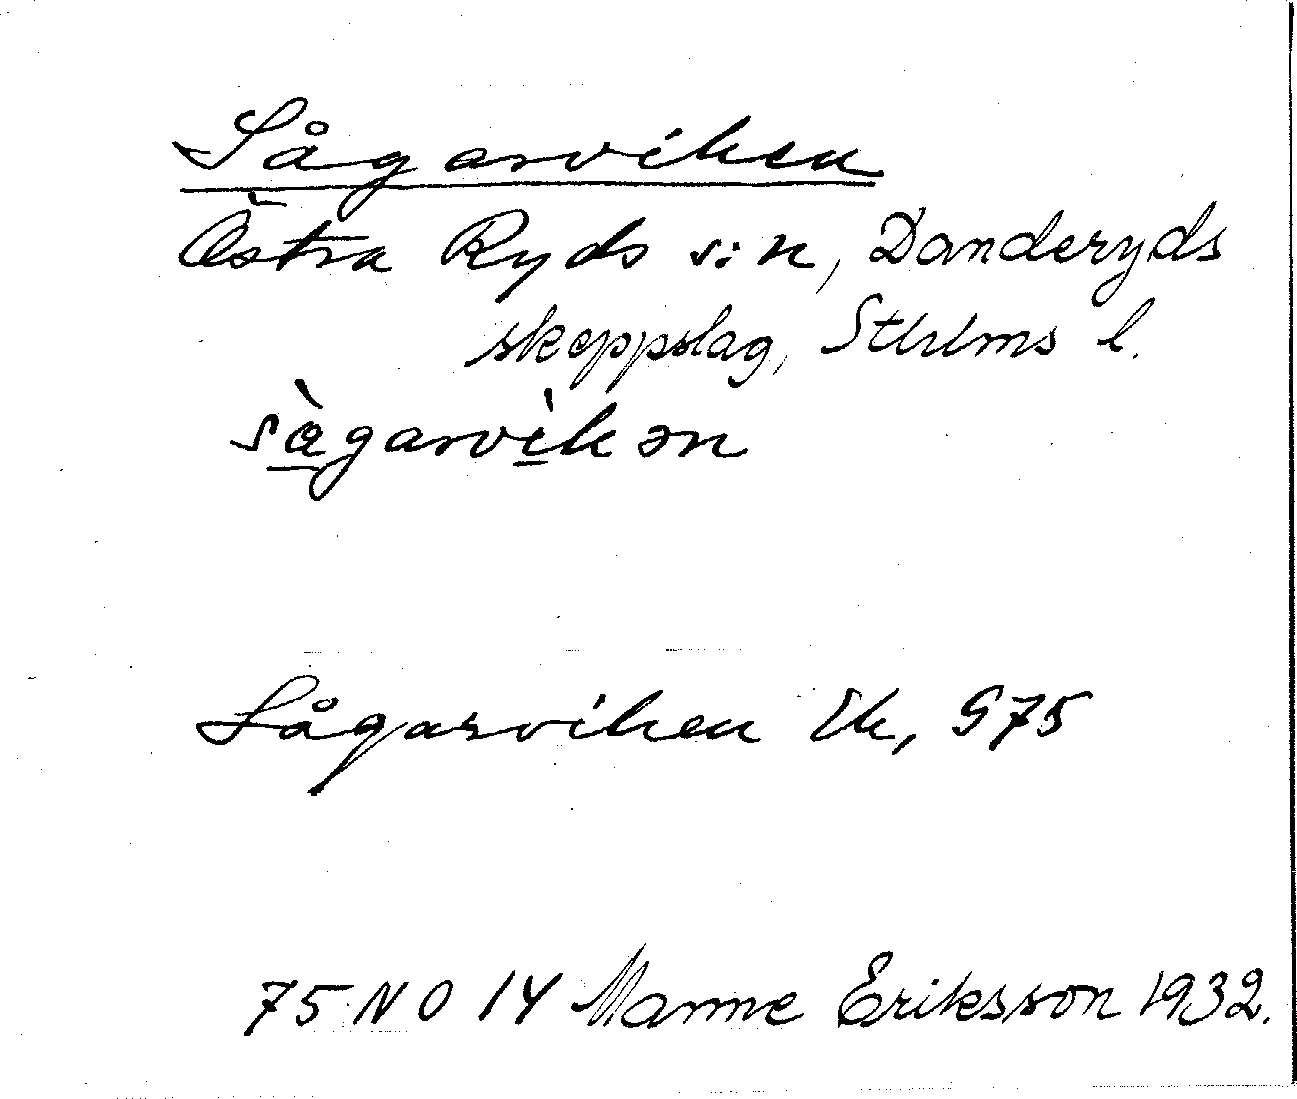 Sågarviken
Östra Ryds s:n, Danderyds
skeppslag, Sthlms l.
sàgarvìkən
Sågarviken Ek, 975
75 N O 14 Manne Eriksson 1932.